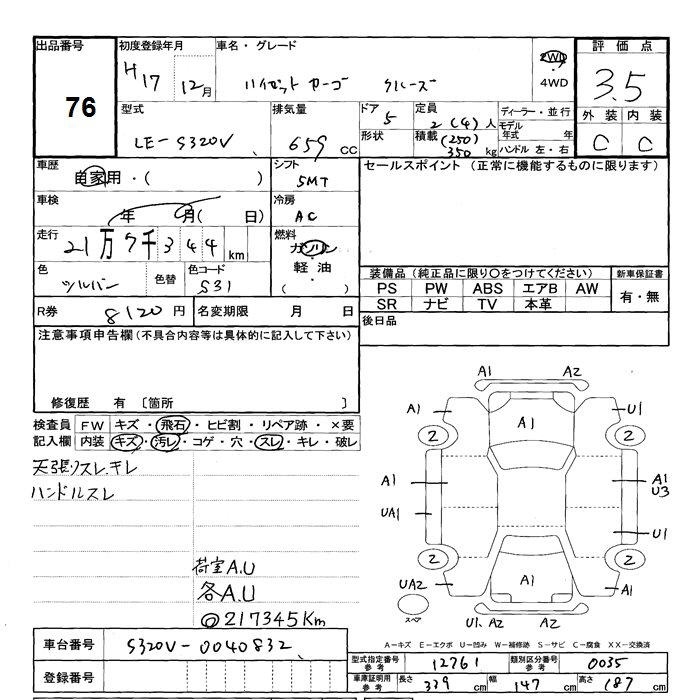 出品番号 初度登録年月 車名・グレード 評価点
76
H17 12月 ハイゼットカーゴ クルーズ 2WD 4WD 3.5
型式 排気量 ドア 定員 ディーラー・並行 外装 内装
LE-S320V 659 cc 5 2(4)人 モデル年式 年 C C
形状 積載 (250) 350 kg ハンドル 左・右
車歴 自家用・( ) シフト 5MT セールスポイント (正常に機能するものに限ります)
車検 年 月( 日) 冷房 AC
走行 21万7千344 km 燃料 ガソリン
軽・油
( )
色 シルバー 色替 色コード S31
装備品 (純正品に限り○をつけてください) 新車保証書
PS PW ABS エアB AW 有・無
SR ナビ TV 本革
R券 8120円 名変期限 月 日 後日品
注意事項申告欄(不具合内容等は具体的に記入して下さい)
修復歴 有 〔箇所 〕
検査員 FW キズ・飛石・ヒビ割・リペア跡・×要
記入欄 内装 キズ・汚レ・コゲ・穴・スレ・キレ・破レ
天張リスレ.キレ
ハンドルスレ
荷室A.U
各A.U
◎217345Km
A1 A2
A1 A1 U1
2 2
A1 A1
U3
UA1 U1
2 2
UA2 A1 A1
スペア U1. A2 A2
A-キズ E-エクボ U-凹み W-補修跡 S-サビ C-腐食 XX-交換済
車台番号 S320V-0040832
登録番号
型式指定番号 参考 12761 類別区分番号 参考 0035
車庫証明用 参考 長さ 339 cm 幅 147 cm 高さ 187 cm